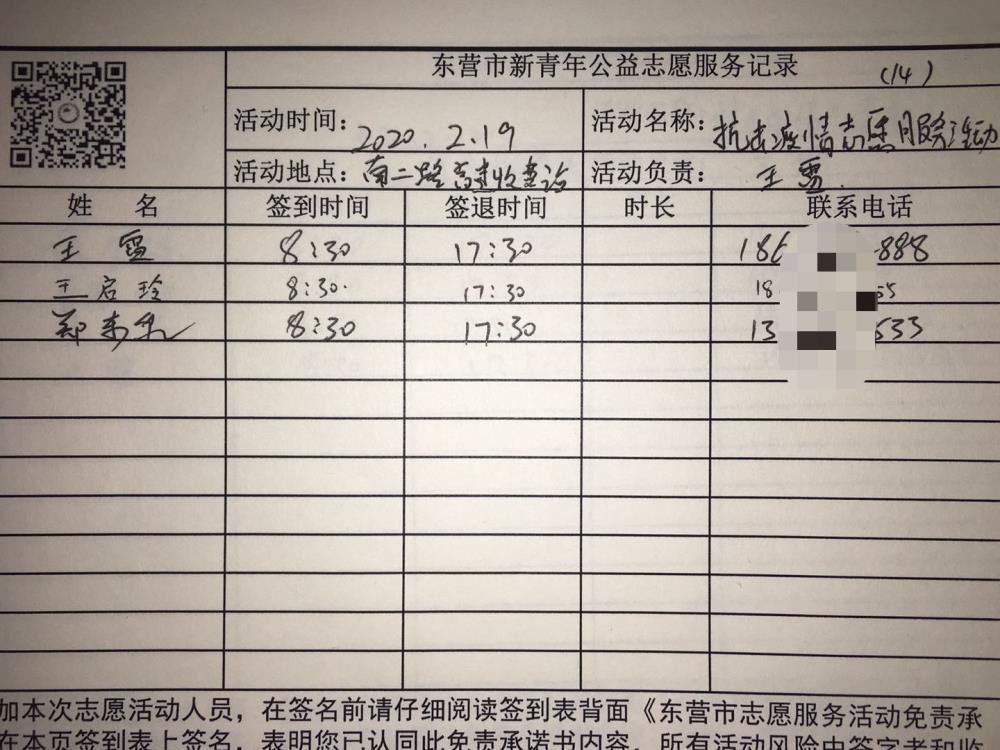 东营市新青年公益志愿服务记录 (14)
活动时间: 2020.2.19 活动名称: 抗击疫情志愿服务活动
活动地点: 南二路高速收费站 活动负责: 王雪
姓 名 签到时间 签退时间 时长 联系电话
王雪 8:30 17:30 186 888
王启玲 8:30 17:30 18 55
郑 8:30 17:30 13 533
加本次志愿活动人员,在签名前请仔细阅读签到表背面《东营市志愿服务活动免责承
在本页签到表上签名,表明您已认同此免责承诺书内容。所有活动风险由签字者和监